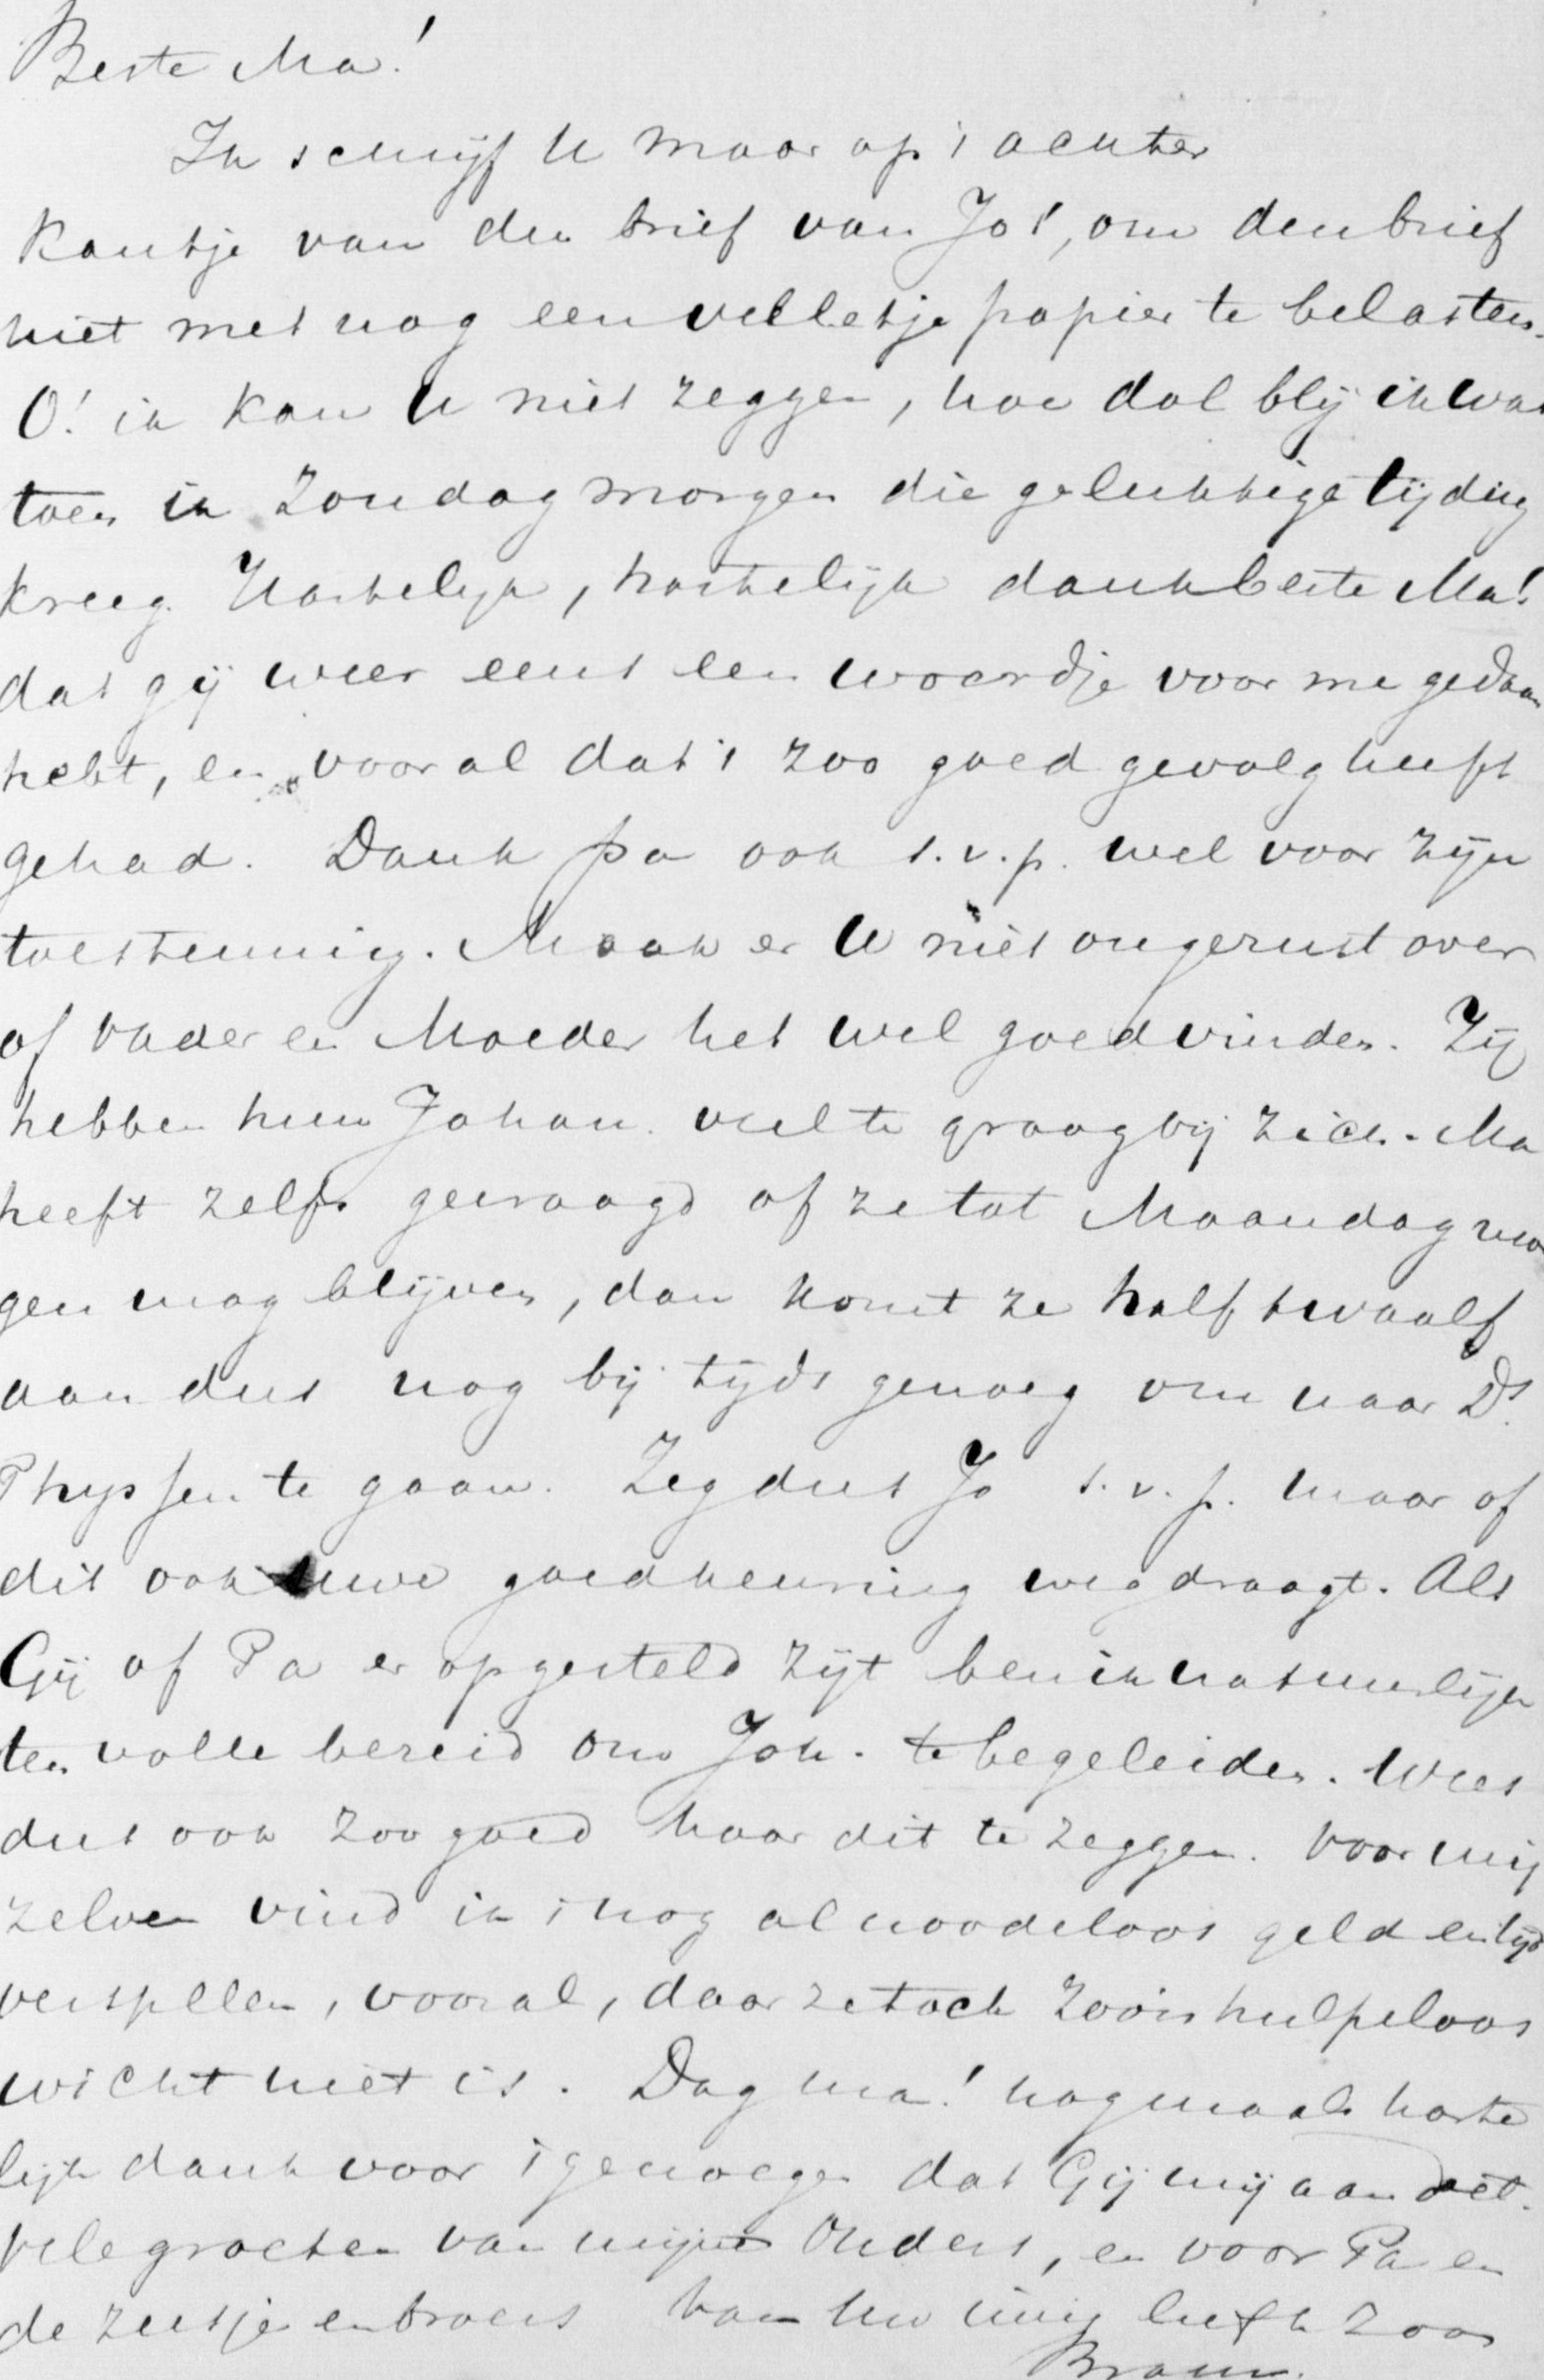 Beste Ma!
Ik schrijf U maar op 't achter
kantje van den brief van Jo's, om den brief
niet met nog een velletje papier te belasten.
O! ik kan U niet zeggen, hoe dol blij ik was
toen ik Zondag morgen die gelukkige tijding
kreeg. Hartelijk, hartelijk dank beste Ma!
dat gij weer eens een woordje voor me gedaan
hebt, en vooral dat 't zoo goed gevolg heeft
gehad. Dank Pa ook s.v.p. wel voor zijn
toestemming. Maak er U niet ongerust over
of Vader en Moeder het wel goedvinden. Zij
hebben hun Johan veel te graag bij zich. Ma
heeft zelfs gevraagd of ze tot Maandag mor
gen mag blijven, dan komt ze half twaalf
aan dus nog bij tijds genoeg om naar Ds.
Thyssen te gaan. Zeg dus Jo s.v.p. maar of
dit ook uwe goedkeuring wegdraagt. Als
Gij of Pa er op gesteld zijt ben ik natuurlijk
ten volle bereid om Joh. te begeleiden. Wees
dus ook zoo goed haar dit te zeggen. Voor mij
zelven vind ik 't nog al noodeloos geld en tijd
verspillen, vooral, daar ze toch zoo'n hulpeloos
wicht niet is. Dag Ma! nogmaals harte
lijk dank voor 't genoegen dat Gij mij aandoet.
Vele groeten van mijne Ouders, en voor Pa en
de zusjes en broers van Uw innig liefh. Zoon
Bram.